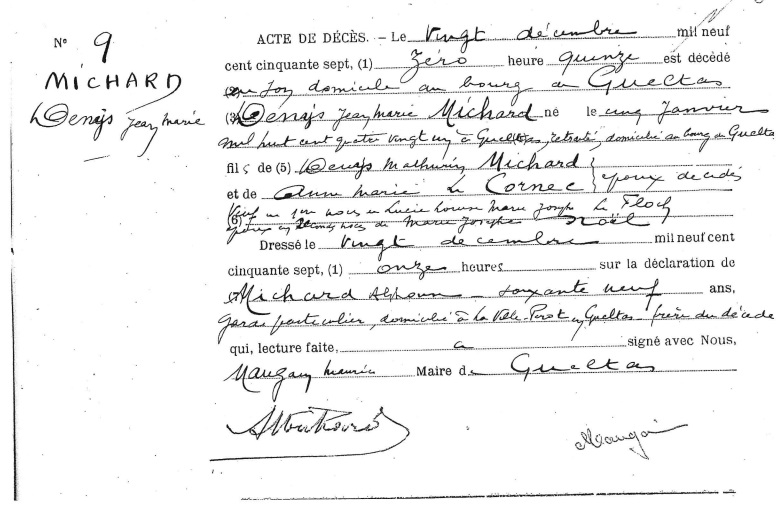 N° 9
MICHARD
Denys Jean Marie
ACTE DE DÉCÈS. - Le vingt décembre mil neuf
cent cinquante sept, (1) zéro heure quinze est décédé
en son domicile au bourg de Gueltas
(3) Denys Jean Marie Michard né le cinq Janvier
mil huit cent quatre vingt un à Gueltas, retraité, domicilié au bourg de Gueltas
fils de (5) Denys Mathurin Michard
et de Anne Marie Le Cornec } époux décédés
(6) Veuf en 1ères noces de Lucie Louise Marie Joseph Le Floch
époux en secondes noces de Marie Josephe Noël
Dressé le vingt décembre mil neuf cent
cinquante sept, (1) onze heures sur la déclaration de
(7) Michard Alphonse soixante neuf ans,
garde particulier, domicilié à la Ville-Perot en Gueltas frère du décédé
qui, lecture faite, a signé avec Nous,
Maugan Maurice Maire de Gueltas
Maugan